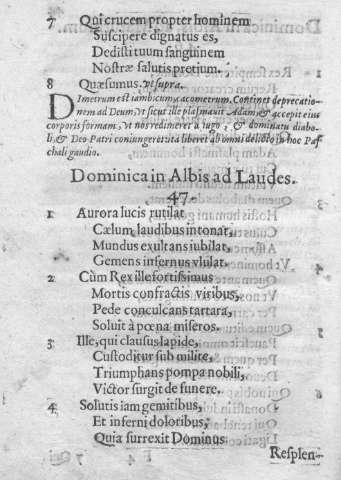 7 Qui crucem propter hominem
Suscipere dignatus es,
Dedisti tuum sanguinem
Nostræ salutis pretium.
8 Quæsumus. vt supra.
Dimetrum est iambicum, acometrum. Continet deprecatio-
nem ad Deum, vt sicut ille plasmauit Adam, & accepit eius
corporis formam, vt nos redimeret a iugo, & dominatu diabo-
li, & Deo Patri coniungeret, ita liberet ab omni delicto in hoc Pas-
chali gaudio.
Dominica in Albis ad Laudes.
47.
1 Aurora lucis rutilat,
Cælum laudibus intonat,
Mundus exultans iubilat,
Gemens infernus vlulat.
2 Cùm Rex ille fortissimus
Mortis confractis viribus,
Pede conculcans tartara,
Soluit à pœna miseros.
3 Ille, qui clausus lapide,
Custoditur sub milite,
Triumphans pompa nobili,
Victor surgit de funere.
4 Solutis iam gemitibus,
Et inferni doloribus,
Quia surrexit Dominus
Resplen-